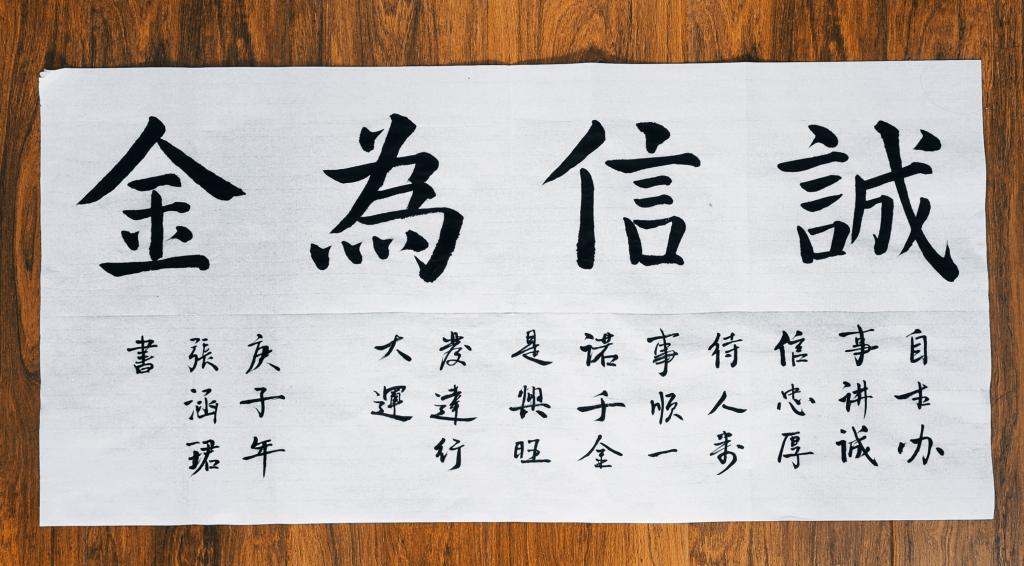 誠信為金
自古办
事讲诚
信忠厚
待人萬
事顺一
诺千金
是興旺
發達行
大運
庚子年
張涵珺
書